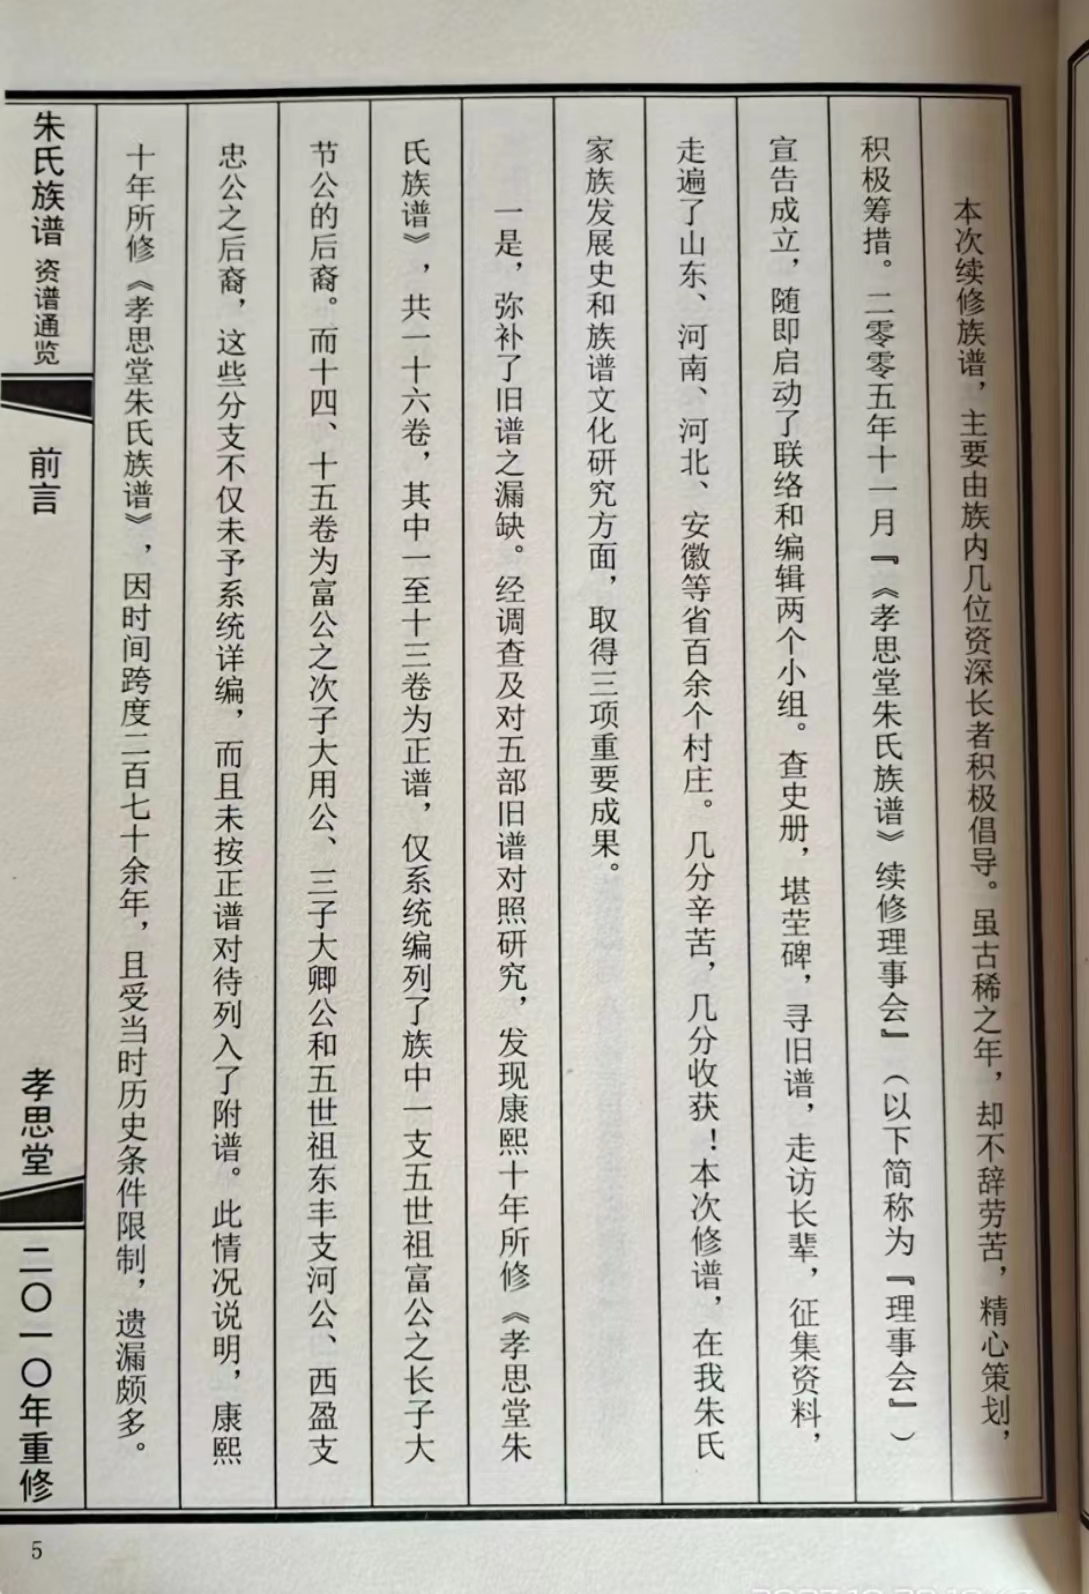 本次续修族谱，主要由族内几位资深长者积极倡导。虽古稀之年，却不辞劳苦，精心策划，
积极筹措。二零零五年十一月『《孝思堂朱氏族谱》续修理事会』（以下简称为『理事会』）
宣告成立，随即启动了联络和编辑两个小组。查史册，堪茔碑，寻旧谱，走访长辈，征集资料，
走遍了山东、河南、河北、安徽等省百余个村庄。几分辛苦，几分收获！本次修谱，在我朱氏
家族发展史和族谱文化研究方面，取得三项重要成果。
一是，弥补了旧谱之漏缺。经调查及对五部旧谱对照研究，发现康熙十年所修《孝思堂朱
氏族谱》，共一十六卷，其中一至十三卷为正谱，仅系统编列了族中一支五世祖富公之长子大
节公的后裔。而十四、十五卷为富公之次子大用公、三子大卿公和五世祖东丰支河公、西盈支
忠公之后裔，这些分支不仅未予系统详编，而且未按正谱对待列入了附谱。此情况说明，康熙
十年所修《孝思堂朱氏族谱》，因时间跨度二百七十余年，且受当时历史条件限制，遗漏颇多。
朱氏族谱 资谱通览
前言
孝思堂
二〇一〇年重修
5